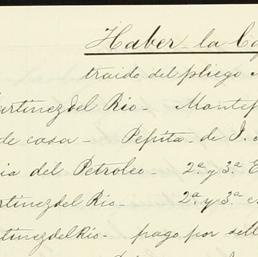 Haber - la Ca
traido del pliego
artinez del Rio - Montep
de casa - Pepita - de J.
is del Petroleo - 2ª y 3ª E
rtinez del Rio - 2ª y 3ª
tinez del Rio - pago por sell